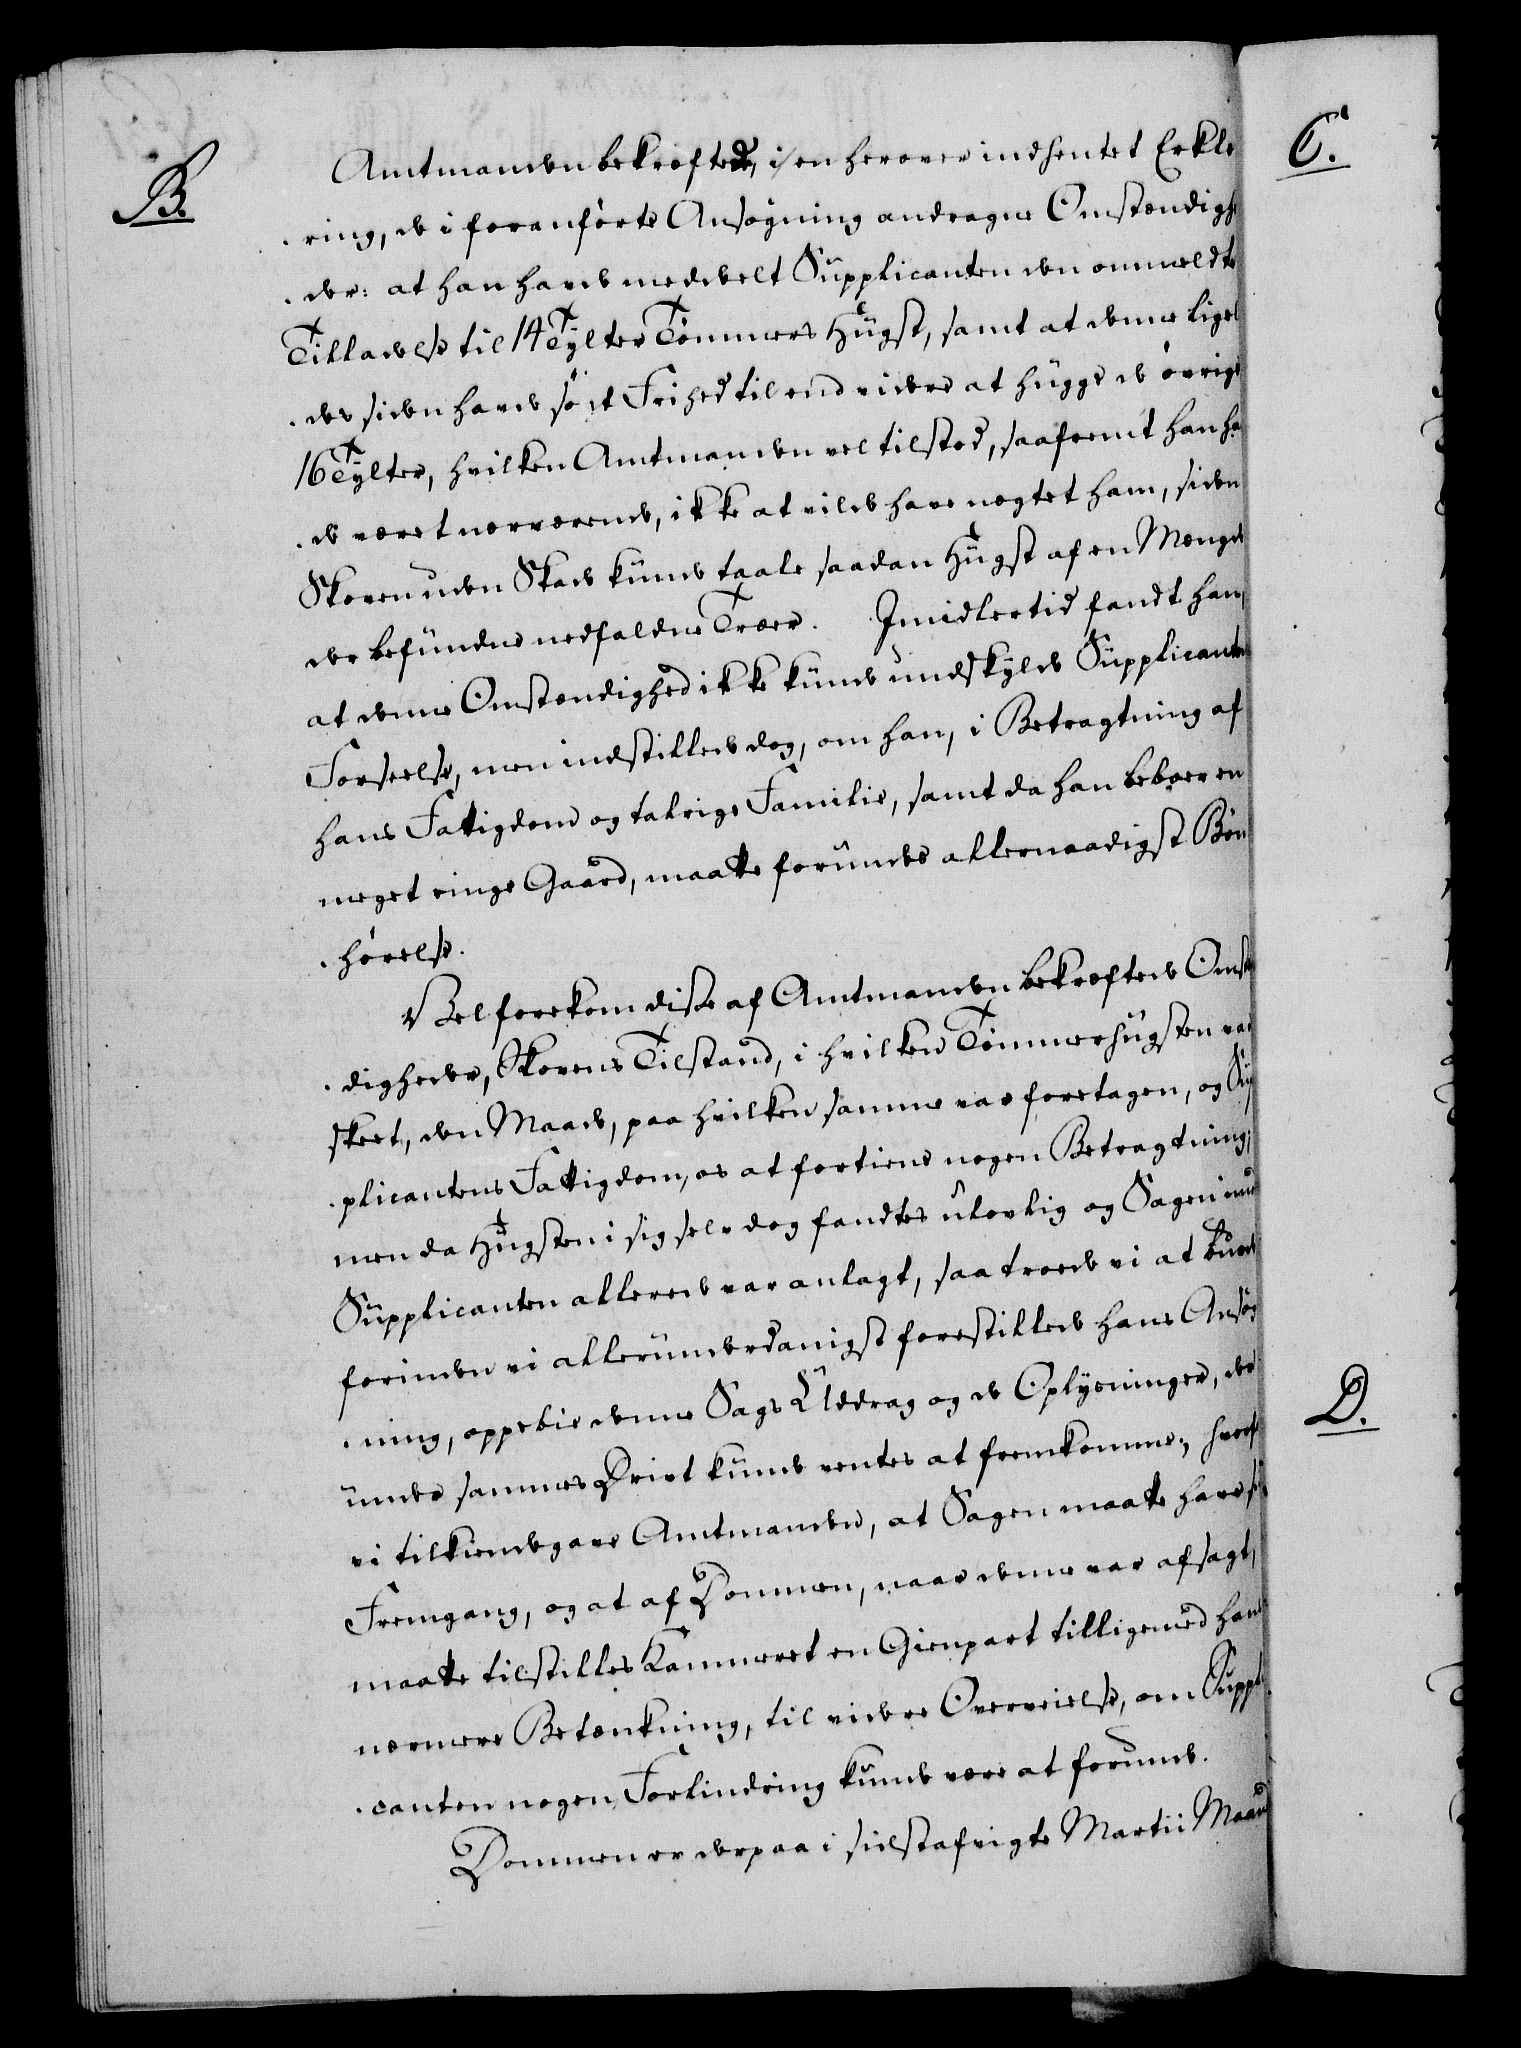 B.
Amtmanden bekræftede, i en herover indhentet Erklæ
ring, de i foranførte Ansøgning andragne Omstændighe
der: at han havde meddeelt Supplicanten den ommeldte
Tilladelse til 14 Tylter Tømmers Hugst, samt at denne lige
des siden havde søgt Frihed til end videre at hugge de øvrige
16 Tylter, hvilken Amtmanden vel tilstod, saafremt han ha
de været nærværende, ikke at vilde have nægtet ham, siden
Skoven uden Skade kunde taale saadan Hugst af en Mængde
der befundne nedfaldne Træer. Imidlertid fandt han,
at denne Omstændighed ikke kunde undskylde Supplicantens
Forseelse, men indstillede dog, om han, i Betragtning af
hans Fattigdom og talrige Familie, samt da han beboer en
meget ringe Gaard, maatte forundes allernaadigst Bøn
hørelse.
Vel forekom disse af Amtmanden bekræftede Omstæn
digheder, Skovens Tilstand, i hvilken Tømmerhugsten var
skeet, den Maade, paa hvilken samme var foretagen, og Sup
plicantens Fattigdom, os at fortiene nogen Betragtning;
men da Hugsten i sig selv dog fandtes ulovlig og Sagen imod
Supplicanten allerede var anlagt, saa troede vi at burde
forinden vi allerunderdanigst forestillede hans Ansøg
ning, oppebie denne Sags Uddrag og de Oplysninger, der
under sammes Drivt kunde ventes at fremkomme; hvorfor
vi tilkiendegave Amtmanden, at Sagen maatte have sin
Fremgang, og at af Dommen, naar denne var afsagt,
maatte tilstilles Kammeret en Gienpart tilligemed hans
nærmere Betænkning, til videre Overveielse, om Suppli
canten nogen Forlindring kunde være at forunde.
Dommen er derpaa i sidstafvigte Martii Maaned
C.
D.